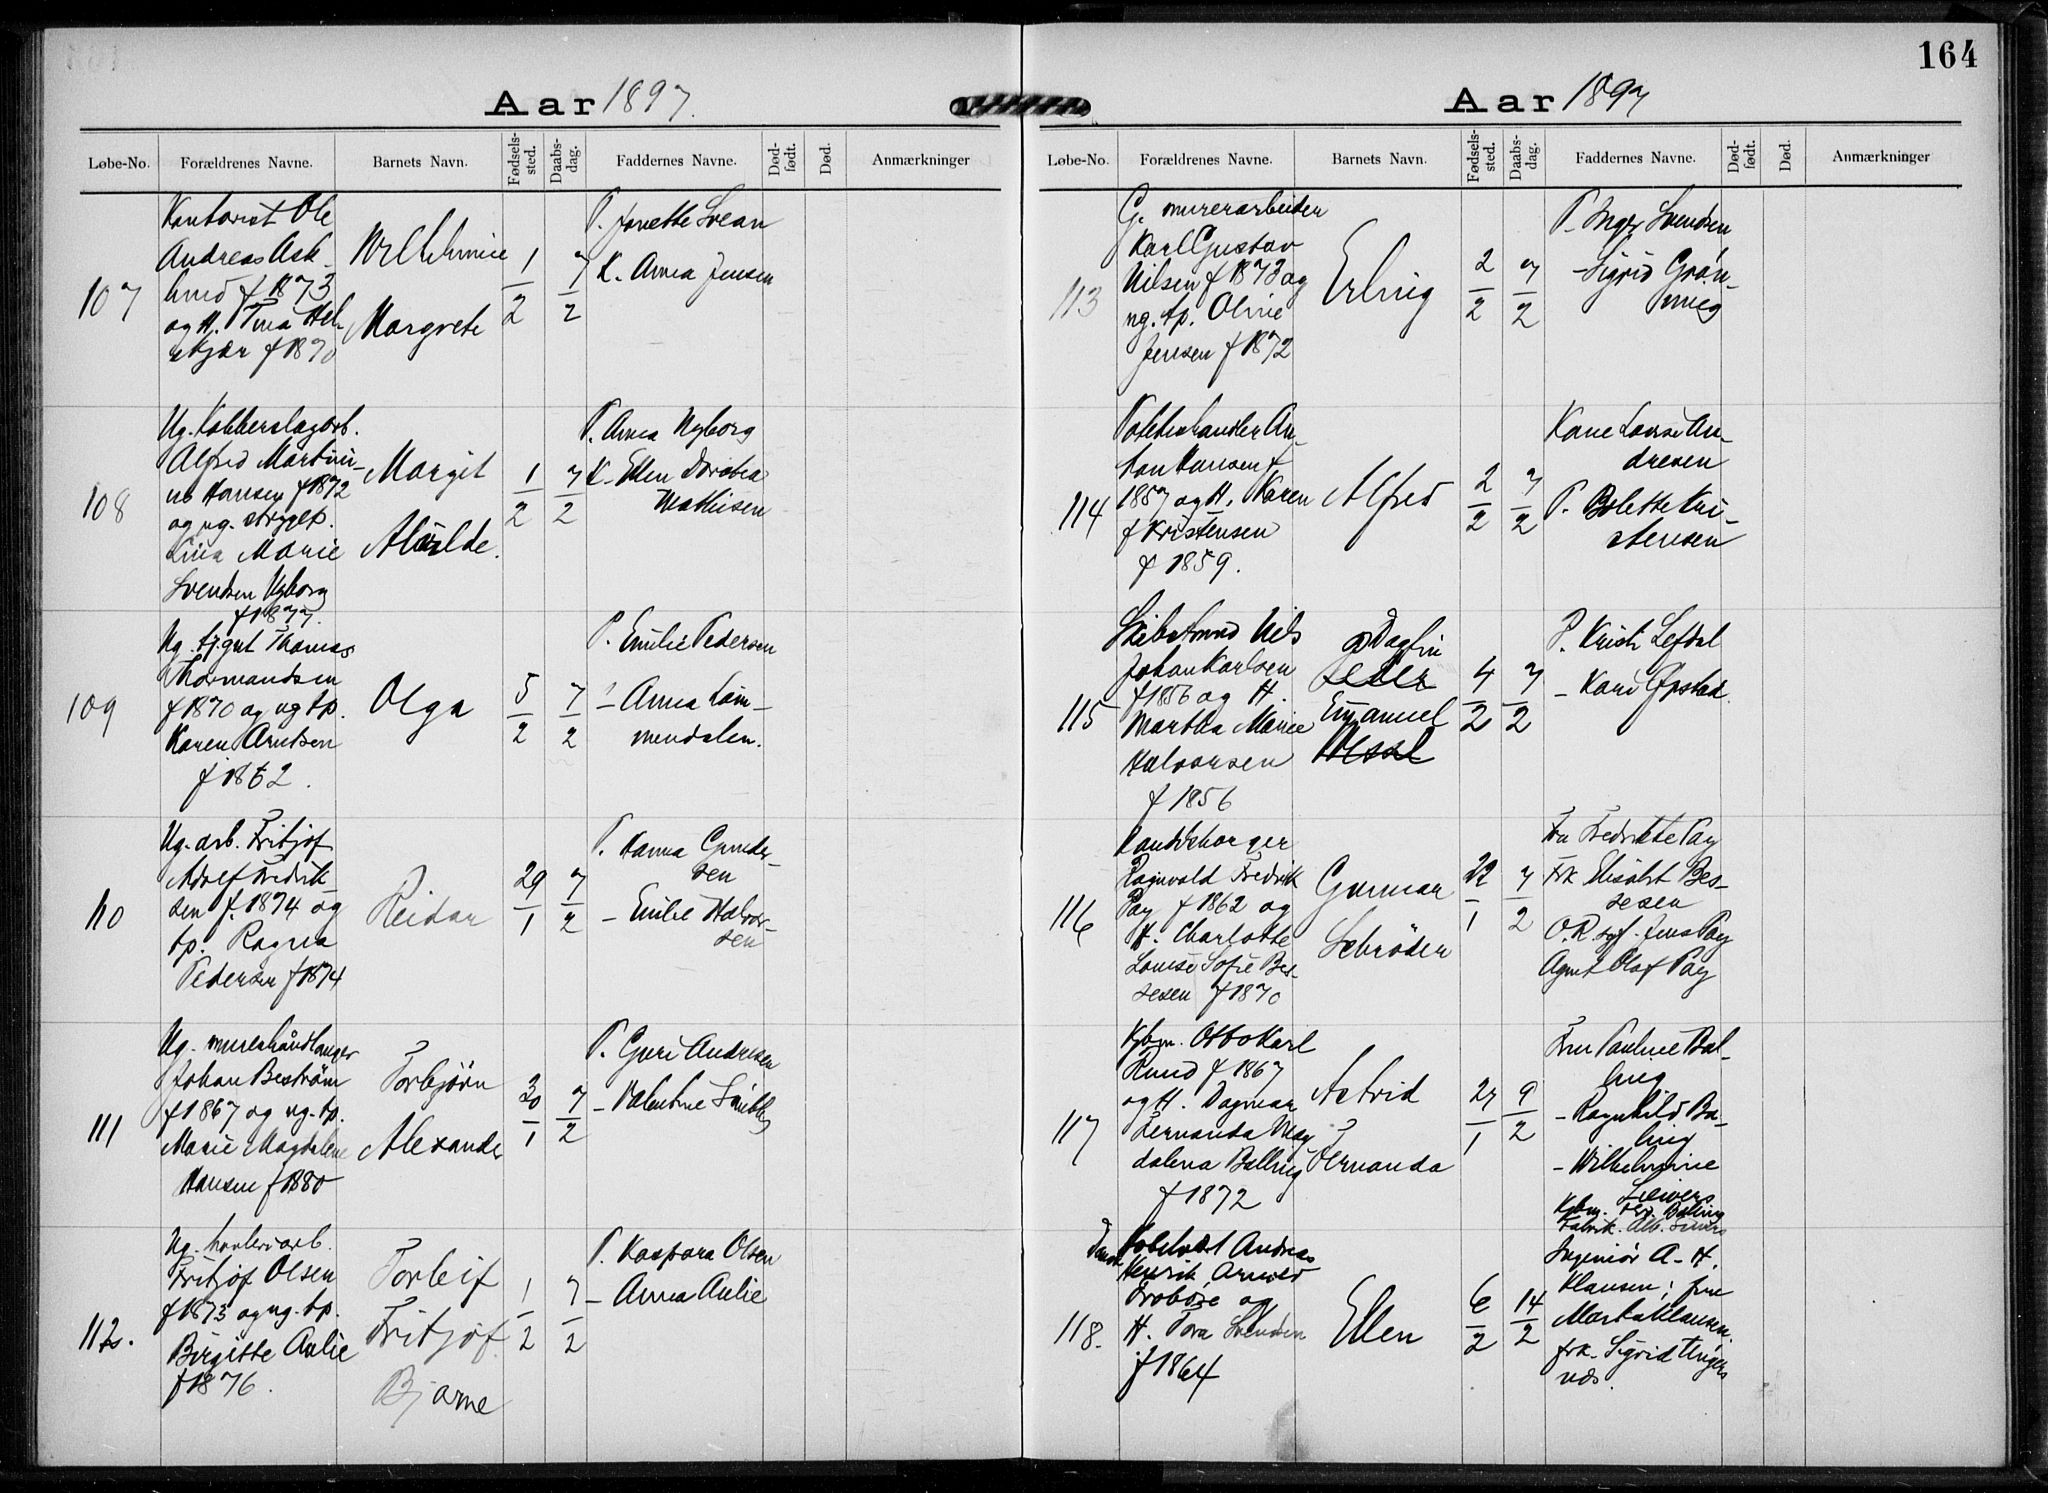 164
Aar 1897.
Løbe-No.
Forældrenes Navne.
Barnets Navn.
Fødselssted.
Daabsdag.
Faddernes Navne.
Dødfødt.
Død.
Anmærkninger
107
Kontorist Ole
Andreas Ask-
lund f 1873
og H. Tina Hel-
skjær f 1870
Wilhelmine
Margrete
1/2
7/2
P. Jonette Svean
K. Anna Jensen
108
Ug. Kobberslagerb.
Alfred Martini-
us Hansen f 1872
og ug. strygep.
Lina Marie
Svendsen Nyborg
f 1877.
Margit
Alvilde.
1/2
7/2
P. Anna Nyborg
K. Ellen Dorotea
Mathisen
109
Ug. tj.gut Thomas
Thormandsen
f 1870 og ug tp.
Karen Arntsen
f 1862.
Olga
5/2
7/2
P. Emilie Pedersen
- Anna Lom-
mendalen.
110
Ug. arb. Fritjof
Adolf Fredrik-
sen f. 1874 og
tp. Ragna
Pedersen f 1874
Reidar
29/1
7/2
P. Hanna Gunder-
sen
- Emilie Halvor-
sen
111
Ug. murerhåndlanger
Johan Beström
f 1867 og ug. tp.
Marie Magdalene
Hansen f 1880
Torbjörn
Alexander
30/1
7/2
P. Guri Andresen
- Valentine
112.
Ug. høvleriarb.
Fritjof Olsen
f 1873 og ug. tp.
Birgitte Aulie
f 1876.
Torleif
Fritjof
Bjarne
1/2
7/2
P. Kaspara Olsen
- Anna Aulie
Aar 1897
Løbe-No.
Forældrenes Navne.
Barnets Navn.
Fødselssted.
Daabsdag.
Faddernes Navne.
Dødfødt.
Død.
Anmærkninger
113
G. murerarbeider
Karl Gustav
Nilsen f 1873 og
ug. tp. Oline
Jensen f 1872
Erling
2/2
7/2
P. Inger Svendsen
- Sigrid Grøn-
ning
114
Pottehandler An-
ton Hansen f
1857 og H. Karen
f Kristensen
f 1859.
Alfred
2/2
7/2
Kone Lovise An-
dresen
P. Bolette Kri-
stensen
115
Skibstmd Nils
Johan Karlsen
f 1856 og H.
Martha Marie
Halvorsen
f 1856
Dagfin
Peder
Emanuel
4/2
7/2
P. Kristi Lefdal
- Kari Øpstad.
116
Ragnvald Fredrik
Pay f 1862 og
H. Charlotte
Louise Sofie Bes-
sesen f 1870
Gunnar
Schröder
22/1
7/2
Fru Fredrikke Pay
Frk Elisabet Bes-
sesen
O.R.sgf. Jens Pay
Agent Olaf Pay
117
Kjbm. Otto Karl
Rund f 1867
og H. Dagmar
Fernanda Mag
dalena Balling
f 1872
Astrid
Fernanda
27/1
9/2
Fru Pauline Bal-
ling
- Ragnhild Ba-
lling
- Wilhelmine
Sievers
Kjbm. Balling
Fabrik. Alb. Sievers
118.
Dansk
Andreas
Henrik Arnold
Froböse og
H. Tora Svendsen
f 1864
Ellen
6/2
14/2
Ingeniör A. H.
Klausen; fru
Marta Klausen.
frk. Sigrid